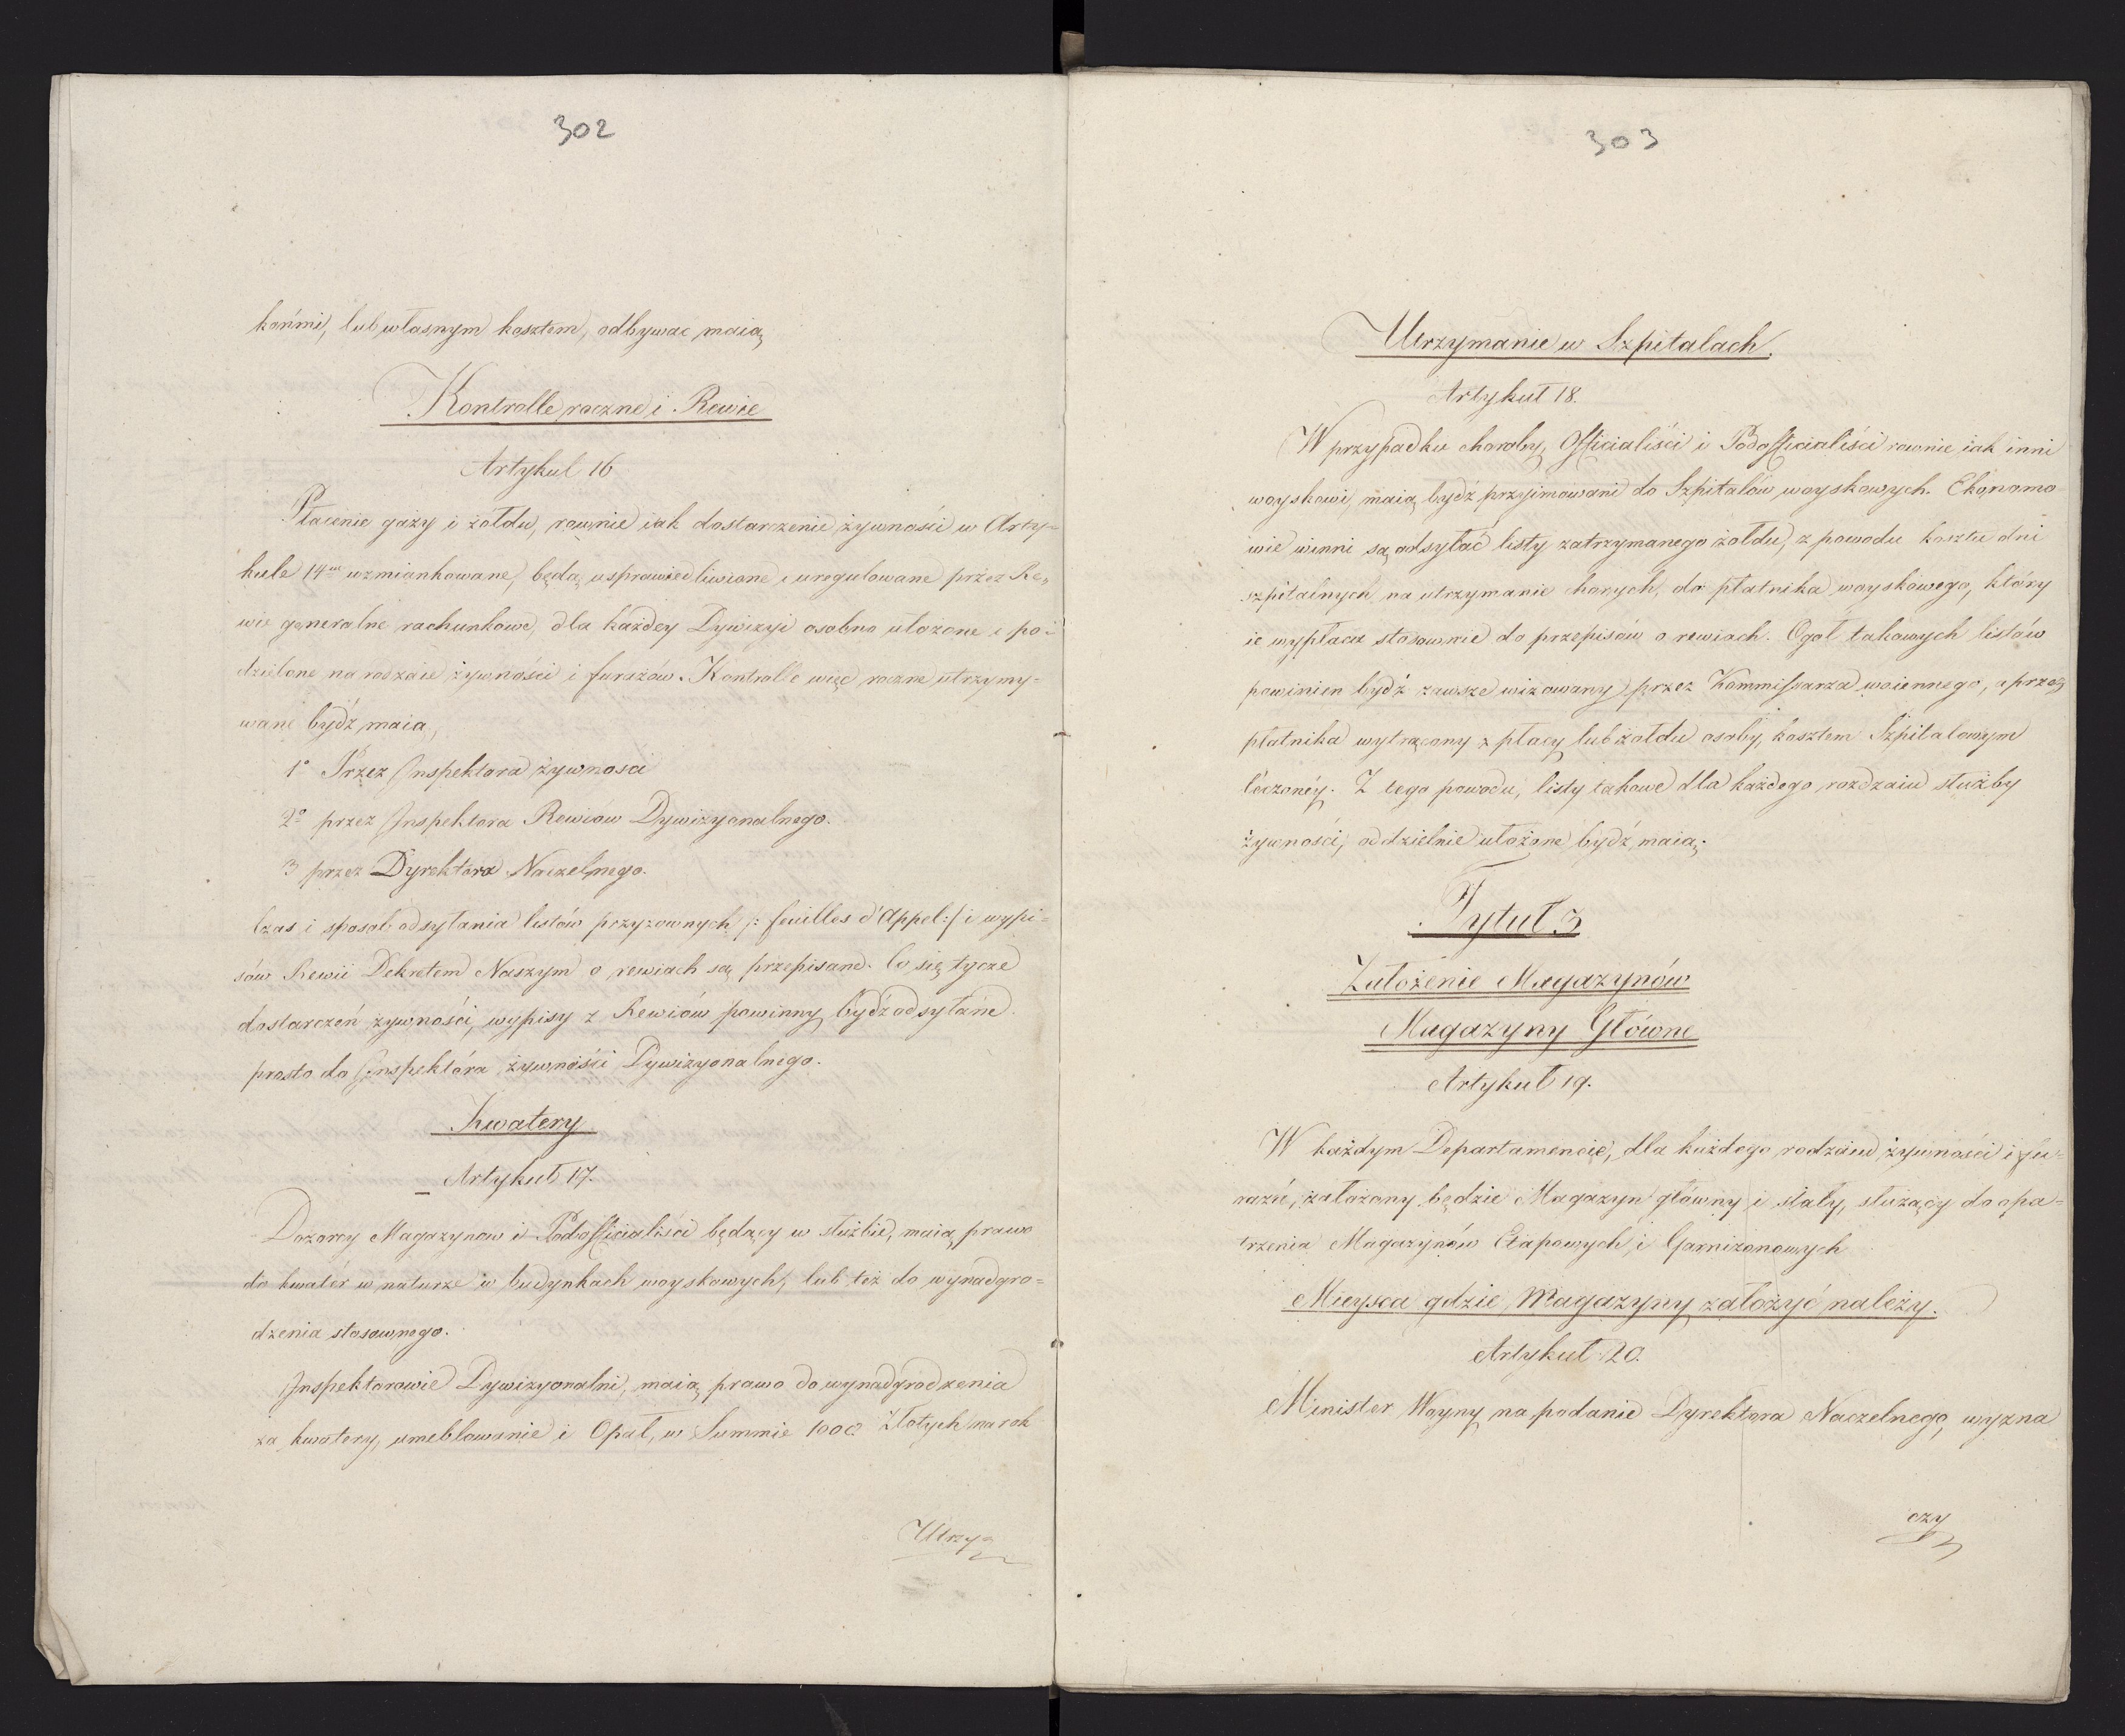 302
końmi, lub własnym kosztem, odbywać maią
Kontrolle roczne i Rewie
Artykul 16
Płacenie gaży i żołdu, rownie iak dostarczenie żywności w Arty-
kule 14ym wzmiankowane, będą usprawiedliwione i uregulowane przez Re-
wie generalne rachunkowe, dla każdey Dywizyi osobno ułożone i po-
dzielone na rodzaie żywności i furażów. Kontrolle więc roczne utrzymy-
wane bydź maia,
1° Przez Inspektora żywnosci
2° przez Inspektora Rewiow Dywizyonalnego.
3 przez Dyrektora Naczelnego.
Czas i sposob odsyłania listów przyzownych /: feuilles d'Appel :/ i wypi-
sów Rewii Dekretem Naszym o rewiach są przepisane. Co się tycze
dostarczeń żywności, wypisy z Rewiów powinny bydź odsyłane
prosto do Inspektóra żywności Dywizyonalnego.
Kwatery
Artykuł 17.
Dozorcy Magazynow i Podofficialiści będący w służbie, maią prawo
do kwater w naturze w budynkach woyskowych, lub też do wynadgro-
dzenia stosownego.
Inspektorowie Dywizyonalni, maią prawo do wynadgrodzenia
za kwatery, umeblowanie i Opał, w Summie 1000 Złotych na rok
Utrzy-
303
Utrzymanie w Szpitalach.
Artykuł 18.
W przypadku choroby, Officialiści i Podofficialiści rownie iak inni
woyskowi, maią bydź przyimowani do Szpitalów woyskowych. Ekonomo
wie winni są odsyłać listy zatrzymanego żołdu, z powodu kosztu dni
szpitalnych na utrzymanie horych, do płatnika woyskowego, który
ie wypłaca stosownie do przepisów o rewiach. Ogół takowych listów
powinien bydź zawsze wizowany przez Kommissarza woiennego, a przez
płatnika wytrącony z płacy lub żołdu osoby, kosztem Szpitalowym
léczonéy. Z tego powodu, listy takowe dla każdego rodzaiu służby
żywności, oddzielnie ułożone bydź maią.
Tytuł 3
Założenie Magazynów
Magazyny Główne
Artykuł 19.
W każdym Departamencie, dla każdego rodzaiu żywności i fu-
rażu, założony będzie Magazyn główny i stały, służący do opa-
trzenia Magazynów Etapowych i Garnizonowych
Mieysca gdzie Magazyny założyć należy.
Artykuł 20.
Minister Woyny na podanie Dyrektora Naczelnego, wyzna
czy